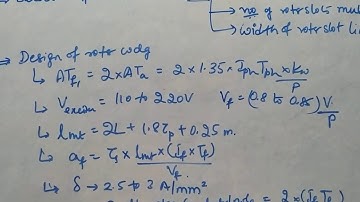 → no of rotor slots mul
→ width of rotor slot li
⇒ Design of rotor wdg
↳ ATf1 = 2 × ATa = 2 × 1.35 × Iph Tph × Kw / P
↳ Vexcin = 110 to 220V Vf = (0.8 to 0.85) V / P
↳ lmt = 2L + 1.8τp + 0.25 m.
↳ af = ζ × lmt × (If × Tf) / Vf
↳ δ → 2.5 to 3 A/mm²
2 × (If Tf)